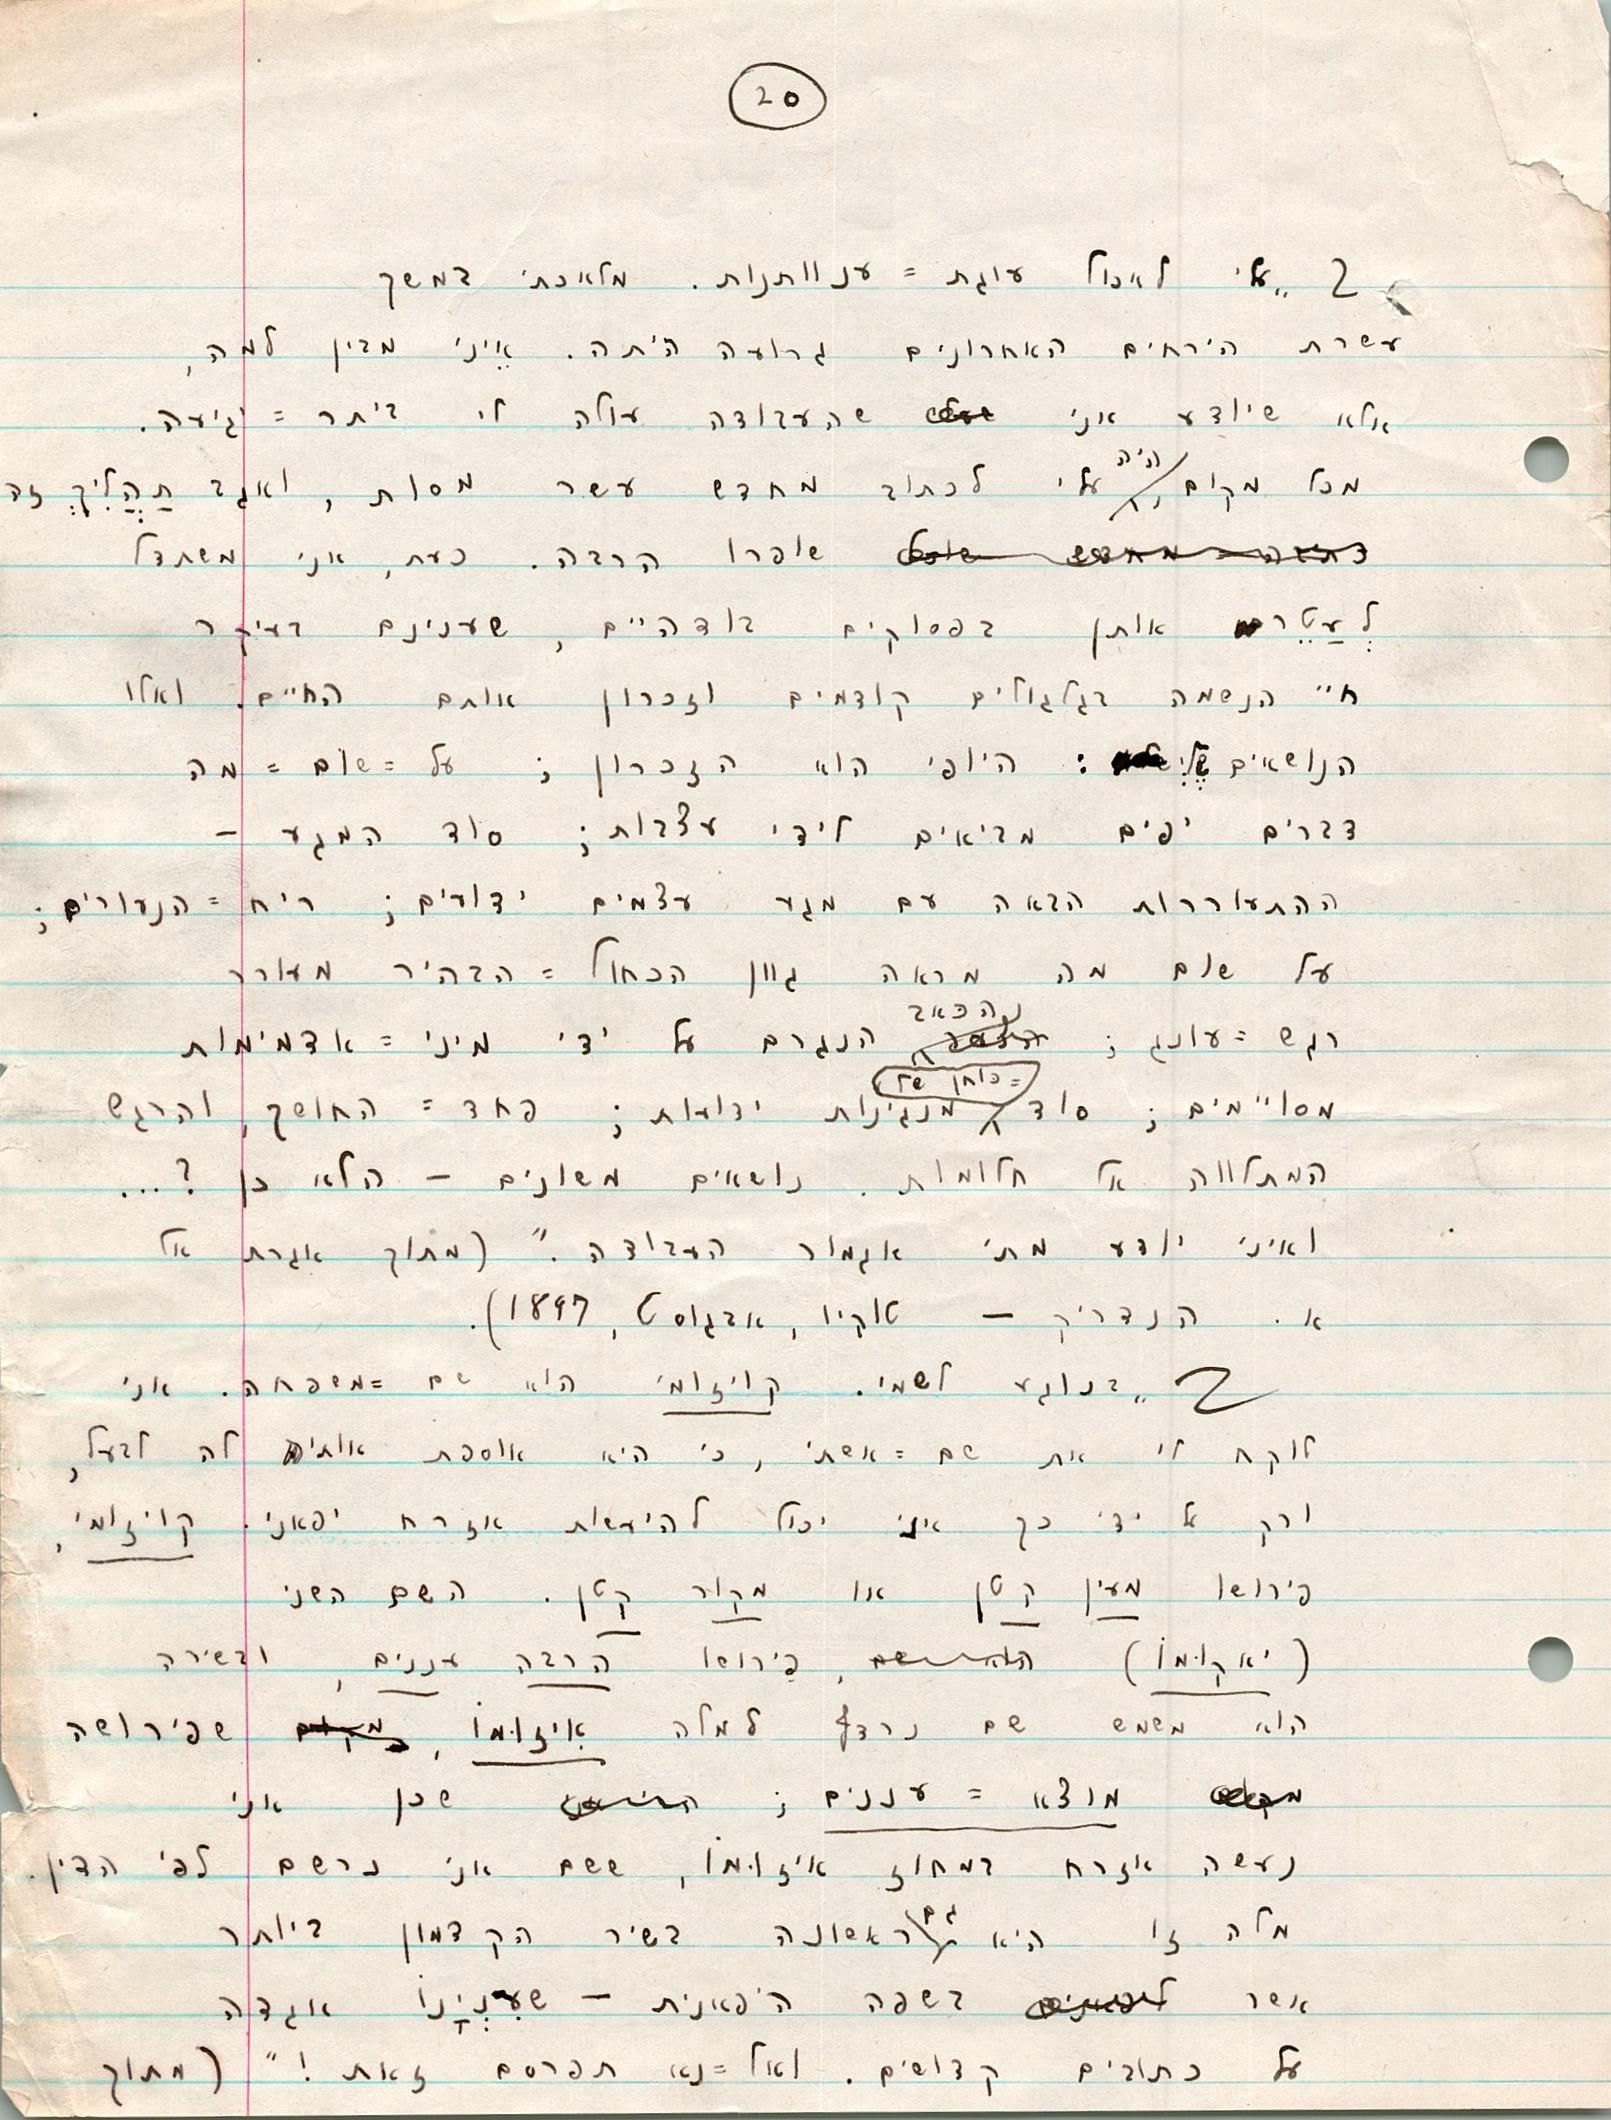 20
„עלי לאכול עוגת = ענוותנות. מלאכתי במשך
עשרת הירחים האחרונים גרועה היתה. אֵיני מבין למה,
אלא שיודע אני שהעבודה עולה לי ביתר = יגיעה.
מכל מקום, היה עלי לכתוב מחדש עשר מסות, ואגב תַהֲלִיךְ זה
כתיבה = מחדש שופרו הרבה. כעת, אני משתדל
לְעַטֵר אותן בפסוקים בודהיים, שענינם בעיקר
חיי הנשמה בגלגולים קודמים וזכרון אותם החיים. ואלו
הנושאים שֶלִי: היופי הוא הזכרון; על = שום = מה
דברים יפים מביאים לידי עצבות; סוד המגע –
ההתעוררות הבאה עם מגע עצמים ידועים; ריח = הנעורים;
על שום מה מראה גוון הכחול = הבהיר מעורר
רגש = עונג; הכאב הנגרם על ידי מיני = אדמימות
מסויימים; סוד = כוחן של מנגינות ידועות; פחד = החושך, והרגש
המתלווה אל חלומות. נושאים משונים – הלא כן?...
ואיני יודע מתי אגמור העבודה." (מתוך אגרת אל
א. הנדריק – טוקיו, אבגוסט, 1897).
„בנוגע לשמי. קויזומי הוא שם = משפחה. אני
לוקח לי את שם = אשתי, כי היא אוספת אותי לה לבעל,
ורק על ידי כך איני יכול להיעשות אזרח יפאני. קויזומי,
פירושו מעין קטן או מקור קטן. השם השני
(יאקוּמוֹ) פירושו הרבה עננים, ובשירה
הוא משמש שם נרדף למלה אִיזוּמוֹ, שפירושה
מוצא = עננים; שכן אני
נעשה אזרח במחוז איזוּמוֹ, ששם אני נרשם לפי הדין.
מלה זו היא גם ראשונה בשיר הקדמון ביותר
אשר בשפה היפאנית – שעִנְיָנוֹ אגדה
על כתובים קדושים. ואל = נא תפרסם זאת!" (מתוך